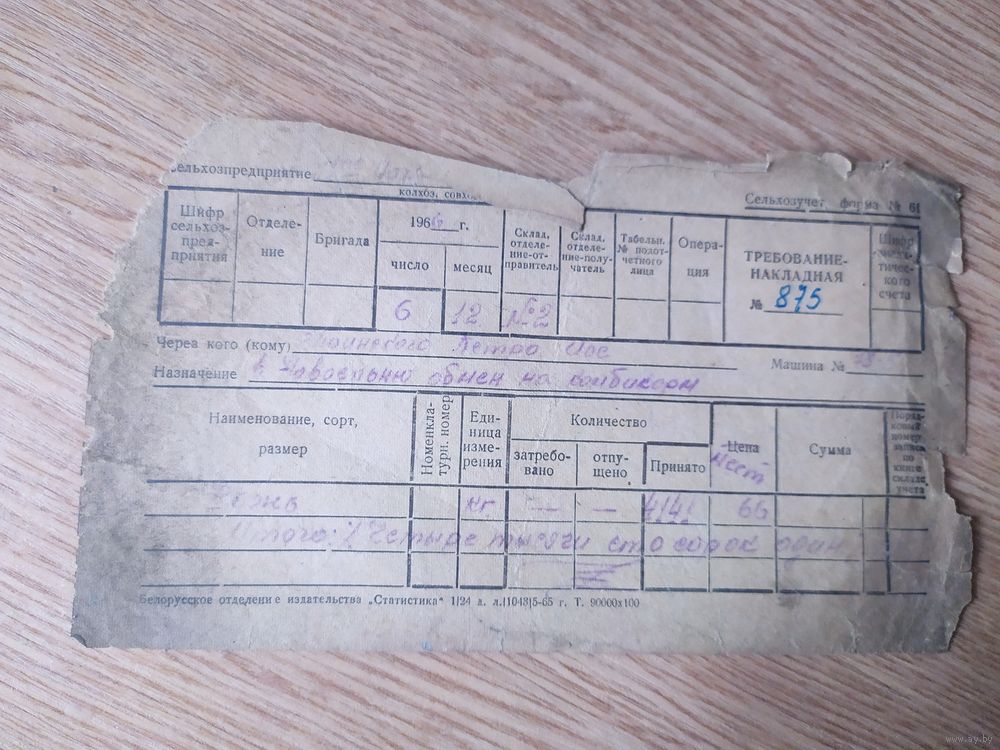 сельхозпредприятие
колхоз, совхоз
Сельхозучет, форма № 61
Шифр сельхоз-пред-приятия
Отделе-ние
Бригада
196 г.
число
месяц
Склад, отделе-ние-от-правитель
Склад, отделе-ние-полу-чатель
Табельн. № подот-четного лица
Опера-ция
ТРЕБОВАНИЕ-
НАКЛАДНАЯ
№ 875
Шифр тичес-кого счета
6 12 №2
Через кого (кому) Петра
Машина №
Назначение в обмен на комбикорм
Наименование, сорт, размер
Номенкла-турн. номер
Еди-ница изме-рения
Количество
затребо-вано
отпу-щено
Принято
Цена
мест
Сумма
Поряд-ковый номер записи по книге склад. учета
Рожь кг — — 4141 66
Итого: Четыре тысячи сто сорок один
Белорусское отделение издательства „Статистика“ 1/24 д. л.|1043|5-65 г. Т. 90000х100
www.ay.by